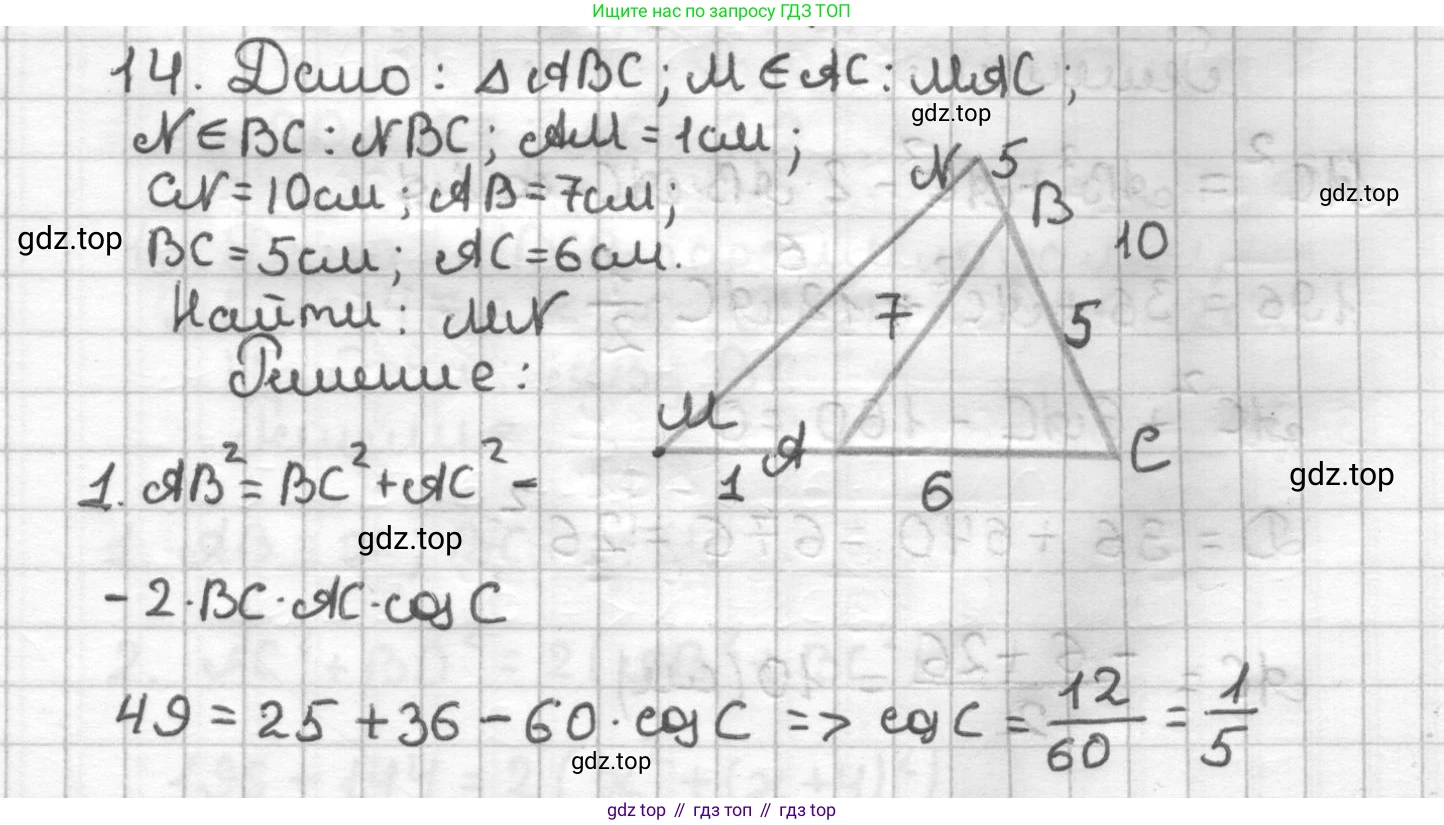 Ищите нас по запросу ГДЗ ТОП
14. Дано: △ABC; M ∈ AC: MAC;
gdz.top
N ∈ BC: NBC; AM = 1 см;
N 5
CN = 10 см; AB = 7 см;
B
gdz.top
gdz.top
BC = 5 см; AC = 6 см.
10
Найти: MN
7
5
Решение:
M
A
C
1
6
1. AB² = BC² + AC² -
gdz.top
gdz.top
- 2·BC·AC·cos C
49 = 25 + 36 - 60·cos C => cos C = 12/60 = 1/5
gdz.top
gdz top // гдз топ // гдз top